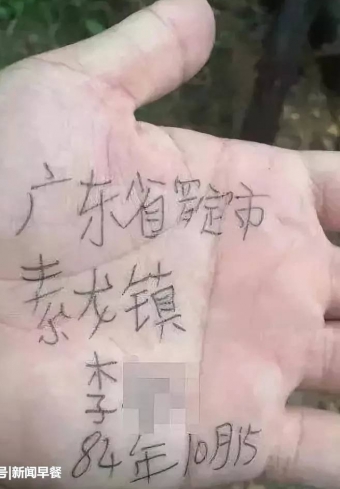 广东省罗定市
素龙镇
李
84年10月15
号|新闻早餐